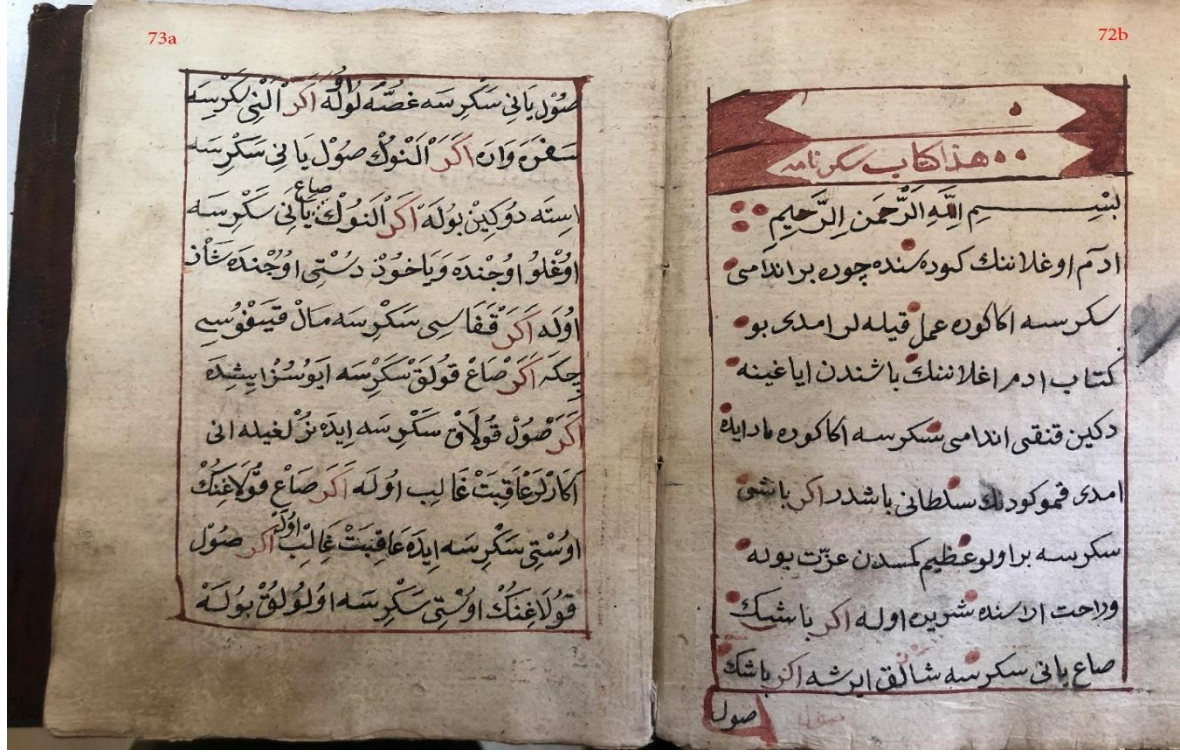 72b
هذا كتاب سكرنامه
بسم الله الرحمن الرحيم
ادم اوغلاننك كوده سنده چوره بر اندامى
سكرسه اكا كوره عمل قيله لر امدى بو
كتاب ادم اغلاننك باشندن اياغينه
دكين قنقى اندامى سكرسه اكا كوره ياد ايده
امدى قمو كودنك سلطانى باشدر اكر باشى
سكرسه بر اولو عظيم كمسدن عزت بوله
وراحت اراسنده شريده اوله اكر باشك
صاغ يانى سكرسه شالق ايرشه اكر باشك
صول
73a
صُول يَانِي سَكْرِسَه غصَّه لُو اوُله اكر اَلْنِي سَكْرِسَه
سَفَرَه وَارَه اَكَرْ اَلْنوُكْ صوُلْ يَانِي سَكْرِسَه
اِستَه دوُكِينْ بوُلَه اَكَرْ اَلنوُكْ صاغ يَانِي سَكْرِسَه
اوُغْلوُ اوُجْنْدَه وَيَاخوُذْ دُسْتِي اوُجْنْدَه شَاذْ
اوُلَه اَكَرْ قَفَاسِى سَكْرِسَه مَالْ قَيغُوسِي
چِكَه اَكَرْ صَاغْ قوُلَقْ سَكْرِسَه اَيوُ سُوزْ اِيشِدَه
اَكَرْ صوُلْ قُولَاقْ سَكْرِسَه اِيدَه نزلغيله انى
اَكَارْلَرْ عَاقِبَتْ غَالِب اوُله اكر صَاغ قُولَاغِنُكْ
اوُسْتِي سَكْرِسَه اِيدَه عَاقِبَتْ غَالِبْ اوُلَه اكر صوُلْ
قوُلَاغِنُكْ اوُسْتِي سَكْرِسَه اوُلوُلُقْ بوُلَه